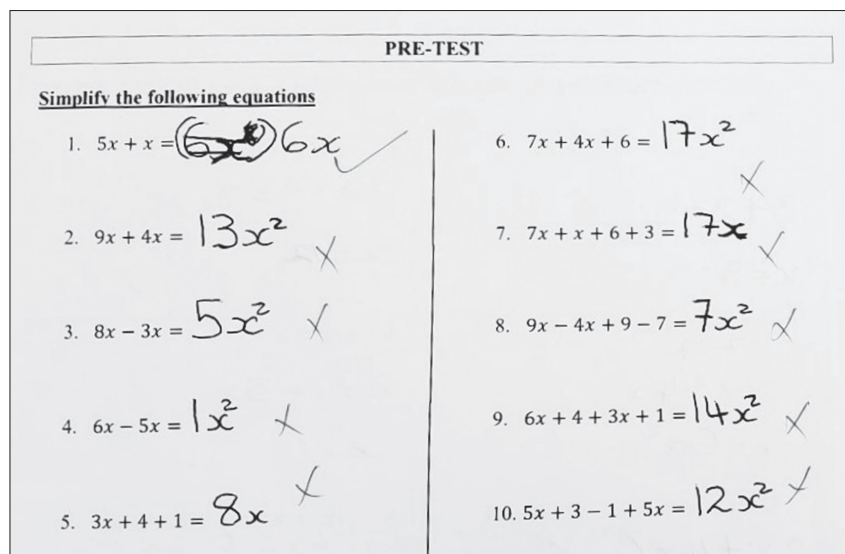 PRE-TEST
Simplify the following equations
1. 5x + x = 6x
2. 9x + 4x = 13x²
3. 8x − 3x = 5x²
4. 6x − 5x = 1x²
5. 3x + 4 + 1 = 8x
6. 7x + 4x + 6 = 17x²
7. 7x + x + 6 + 3 = 17x
8. 9x − 4x + 9 − 7 = 7x²
9. 6x + 4 + 3x + 1 = 14x²
10. 5x + 3 − 1 + 5x = 12x²